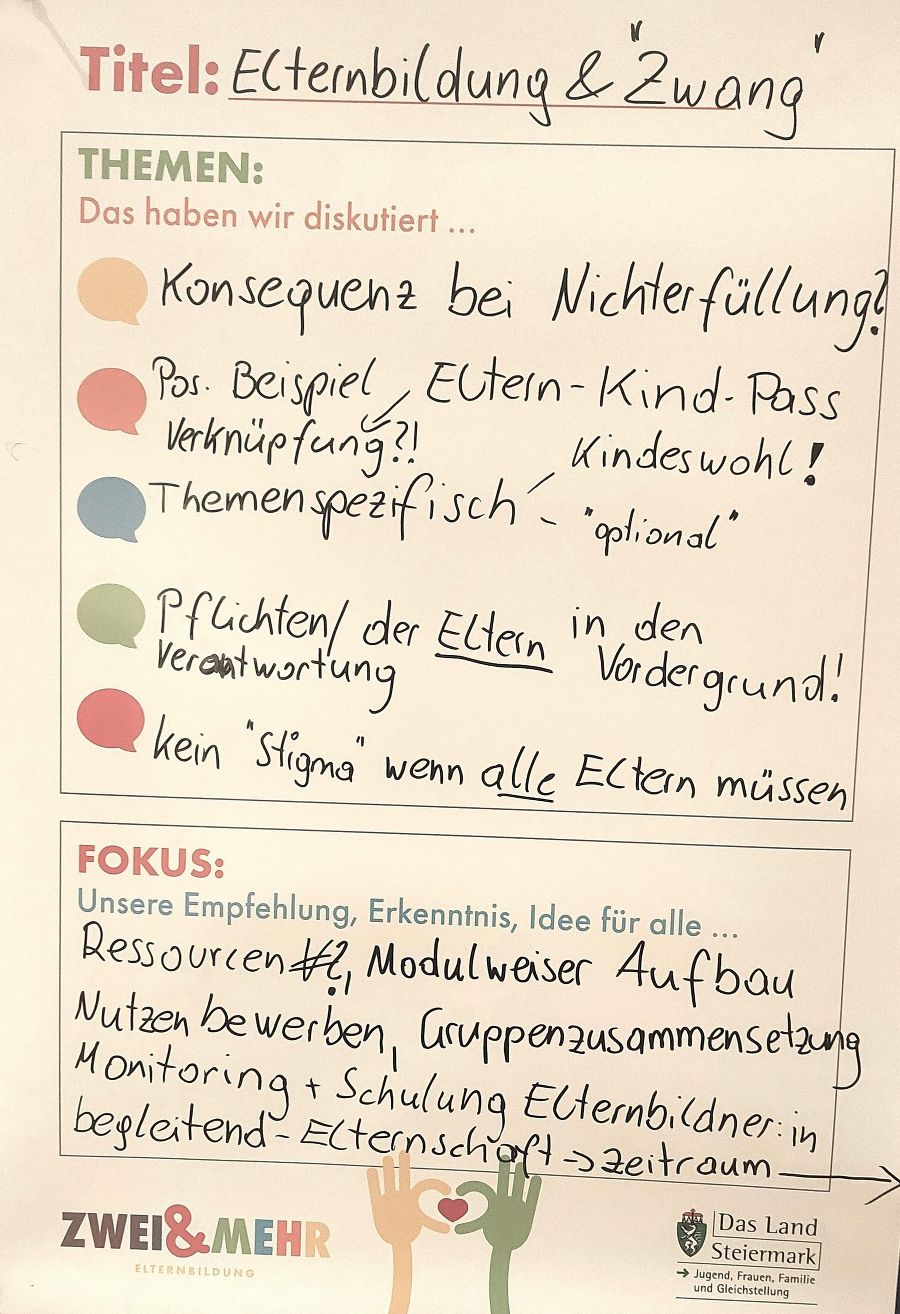 Titel: Elternbildung & "Zwang"
THEMEN:
Das haben wir diskutiert ...
Konsequenz bei Nichterfüllung?
Pos. Beispiel Eltern-Kind-Pass
Verknüpfung?!
Kindeswohl!
Themenspezifisch
"optional"
Pflichten/ der Eltern in den
Verantwortung Vordergrund!
kein "Stigma" wenn alle Eltern müssen
FOKUS:
Unsere Empfehlung, Erkenntnis, Idee für alle ...
Ressourcen #?, Modulweiser Aufbau
Nutzen bewerben, Gruppenzusammensetzung
Monitoring + Schulung Elternbildner:in
begleitend - Elternschaft → Zeitraum →
ZWEI&MEHR
ELTERNBILDUNG
Das Land
Steiermark
→ Jugend, Frauen, Familie
und Gleichstellung